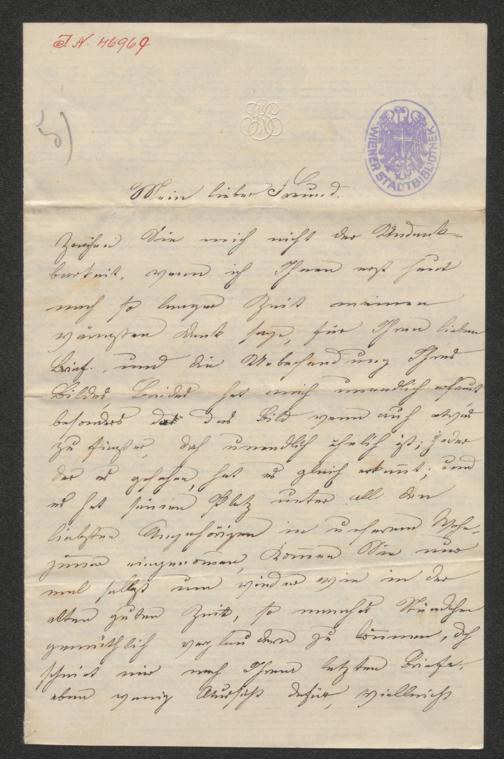 I.N. 46969
WIENER STADTBIBLIOTHEK
Mein lieber Freund.
Zeihen Sie mich nicht der Undank-
barkeit, wenn ich Ihnen erst heut
nach so langer Zeit meinen
wärmsten Dank sage, für Ihren lieben
Brief, und die Uebersendung Ihres
Bildes Beides hat mich unendlich erfreut
besonders das Bild wenn auch etwas
zu finster, doch unendlich ähnlich ist; jeder
der es gesehen, hat es gleich erkannt; und
es hat seinen Platz unter all den
liebsten Angehörigen in unserem
zimmer eingenommen, kommen Sie nur
mal selbst um wieder wie in der
alten guten Zeit, so manches Stündchen
gemüthlich verplaudern zu können, doch
scheint mir nach Ihrem letzten Briefe
eben wenig Aussicht dafür, vielleicht